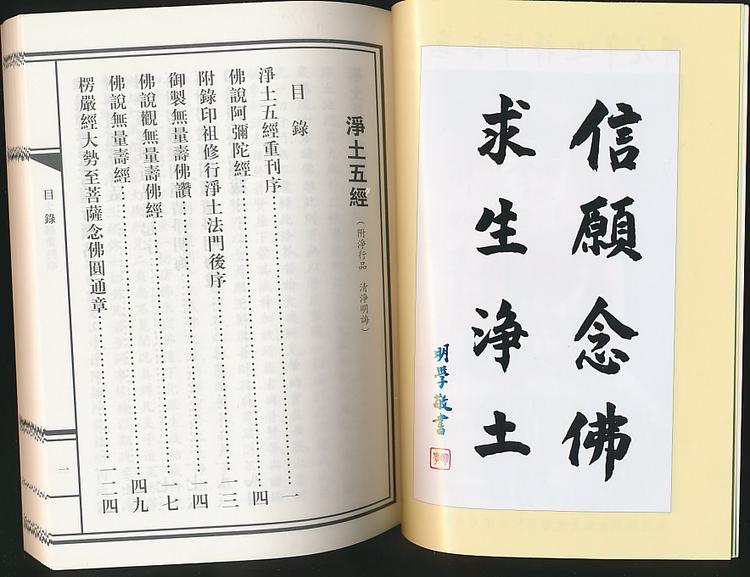 信願念佛
求生浄土
明學敬書
淨土五經（附淨行品 清淨明誨）
目錄
淨土五經重刊序……一
佛說阿彌陀經……四
附錄印祖修行淨土法門後序……一三
御製無量壽佛讚……一四
佛說觀無量壽佛經……一七
佛說無量壽經……四九
楞嚴經大勢至菩薩念佛圓通章……一二四
目錄
一